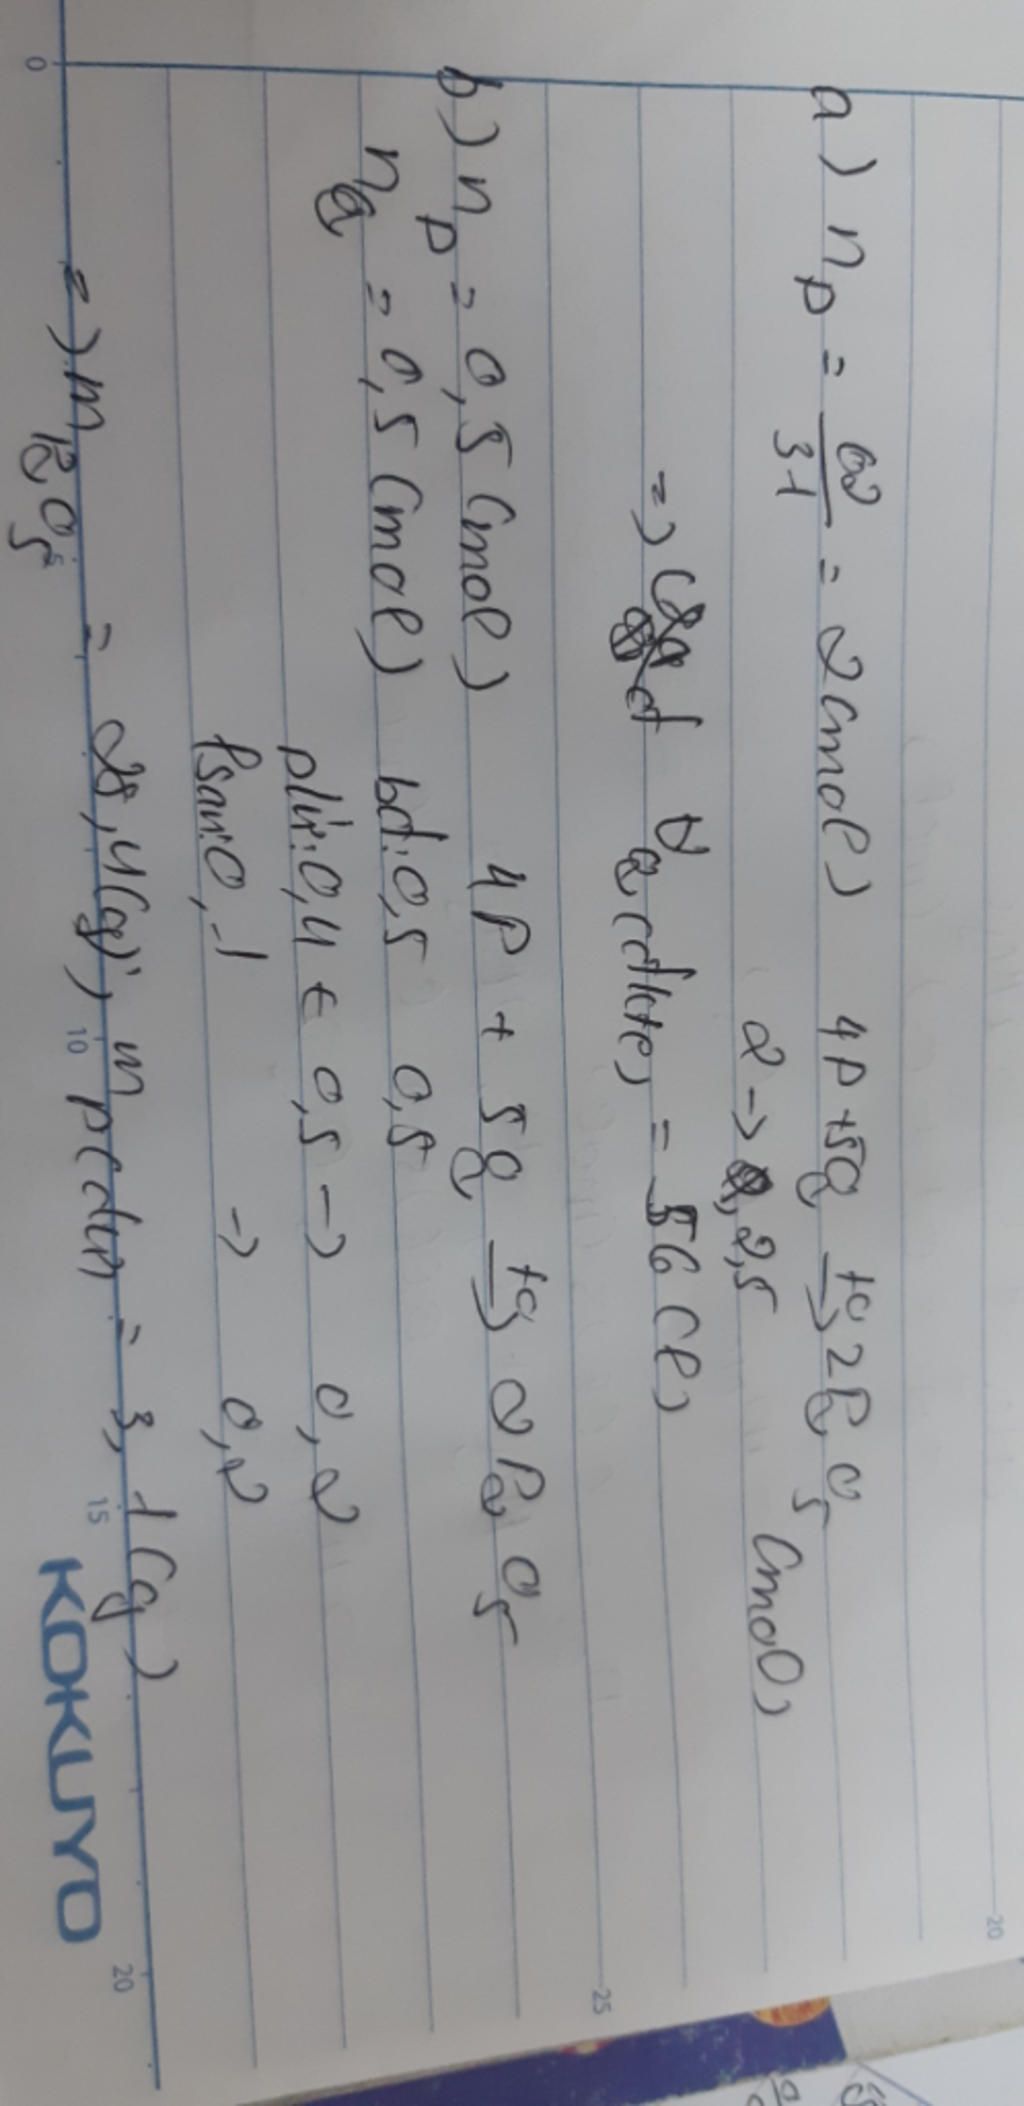 a) n P = 62/31 = 2 (mol) 4P + 5O2 t°→ 2P2O5
2 → 2,5 (mol)
=> V O2 (đktc) = 56 (l)
b) n P = 0,5 (mol) 4P + 5O2 t°→ 2P2O5
n O2 = 0,5 (mol) bđ: 0,5 0,5
pứ: 0,4 ← 0,5 → 0,2
sau: 0,1 → 0,2
=> m P2O5 = 28,4 (g); m P(dư) = 3,1 (g)
0 5 10 15 20
20
25
KOKUYO